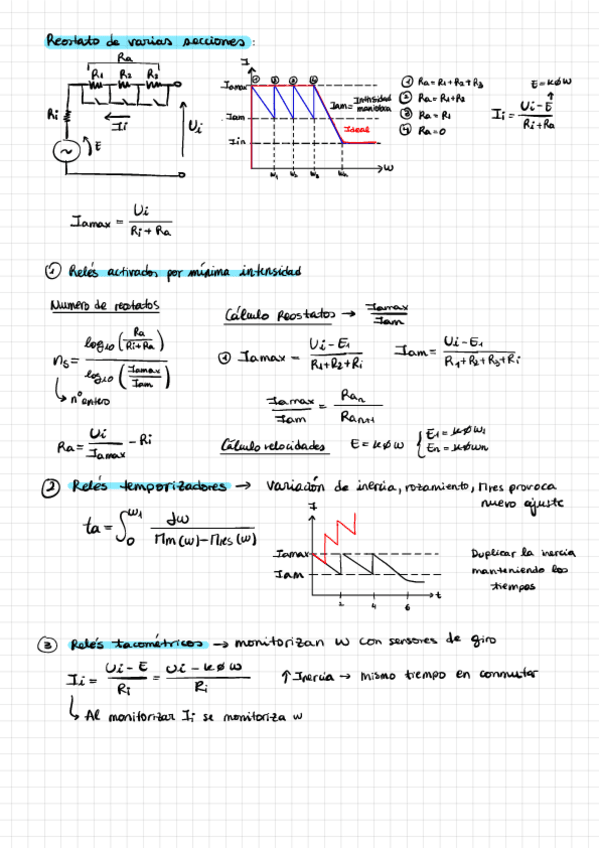 Reostato de varias secciones:
Ra
R1 R2 R3
Ri
Ii
Ui
E
I
Iamax
Iam
Iin
① ② ③ ④
Iam = Intensidad maniobra
Ideal
w1 w2 w3 wn
w
① Ra = R1+R2+R3
② Ra = R1+R2
③ Ra = R1
④ Ra = 0
E = kØw
Ii = Ui - E / Ri + Ra
Iamax = Ui / Ri + Ra
① Relés activados por mínima intensidad
Numero de reostatos
ns = log10 (Ra / Ri+Ra) / log10 (Iamax / Iam)
nº entero
Ra = Ui / Iamax - Ri
Cálculo Reostatos → Iamax / Iam
① Iamax = Ui - E1 / R1+R2+Ri
Iam = Ui - E1 / R1+R2+R3+Ri
Iamax / Iam = Ran / Ran+1
Cálculo velocidades E = kØw { E1 = kØw1
En = kØwn
② Relés temporizadores → Variación de inercia, rozamiento, Mres provoca
nuevo ajuste
ta = ∫0 w1 dw / Mm(w) - Mres(w)
I
Iamax
Iam
2 4 6
t
Duplicar la inercia
manteniendo los
tiempos
③ Relés tacométricos → monitorizan w con sensores de giro
Ii = Ui - E / Ri = Ui - kØw / Ri
↑ Inercia → mismo tiempo en conmutar
Al monitorizar Ii se monitoriza w